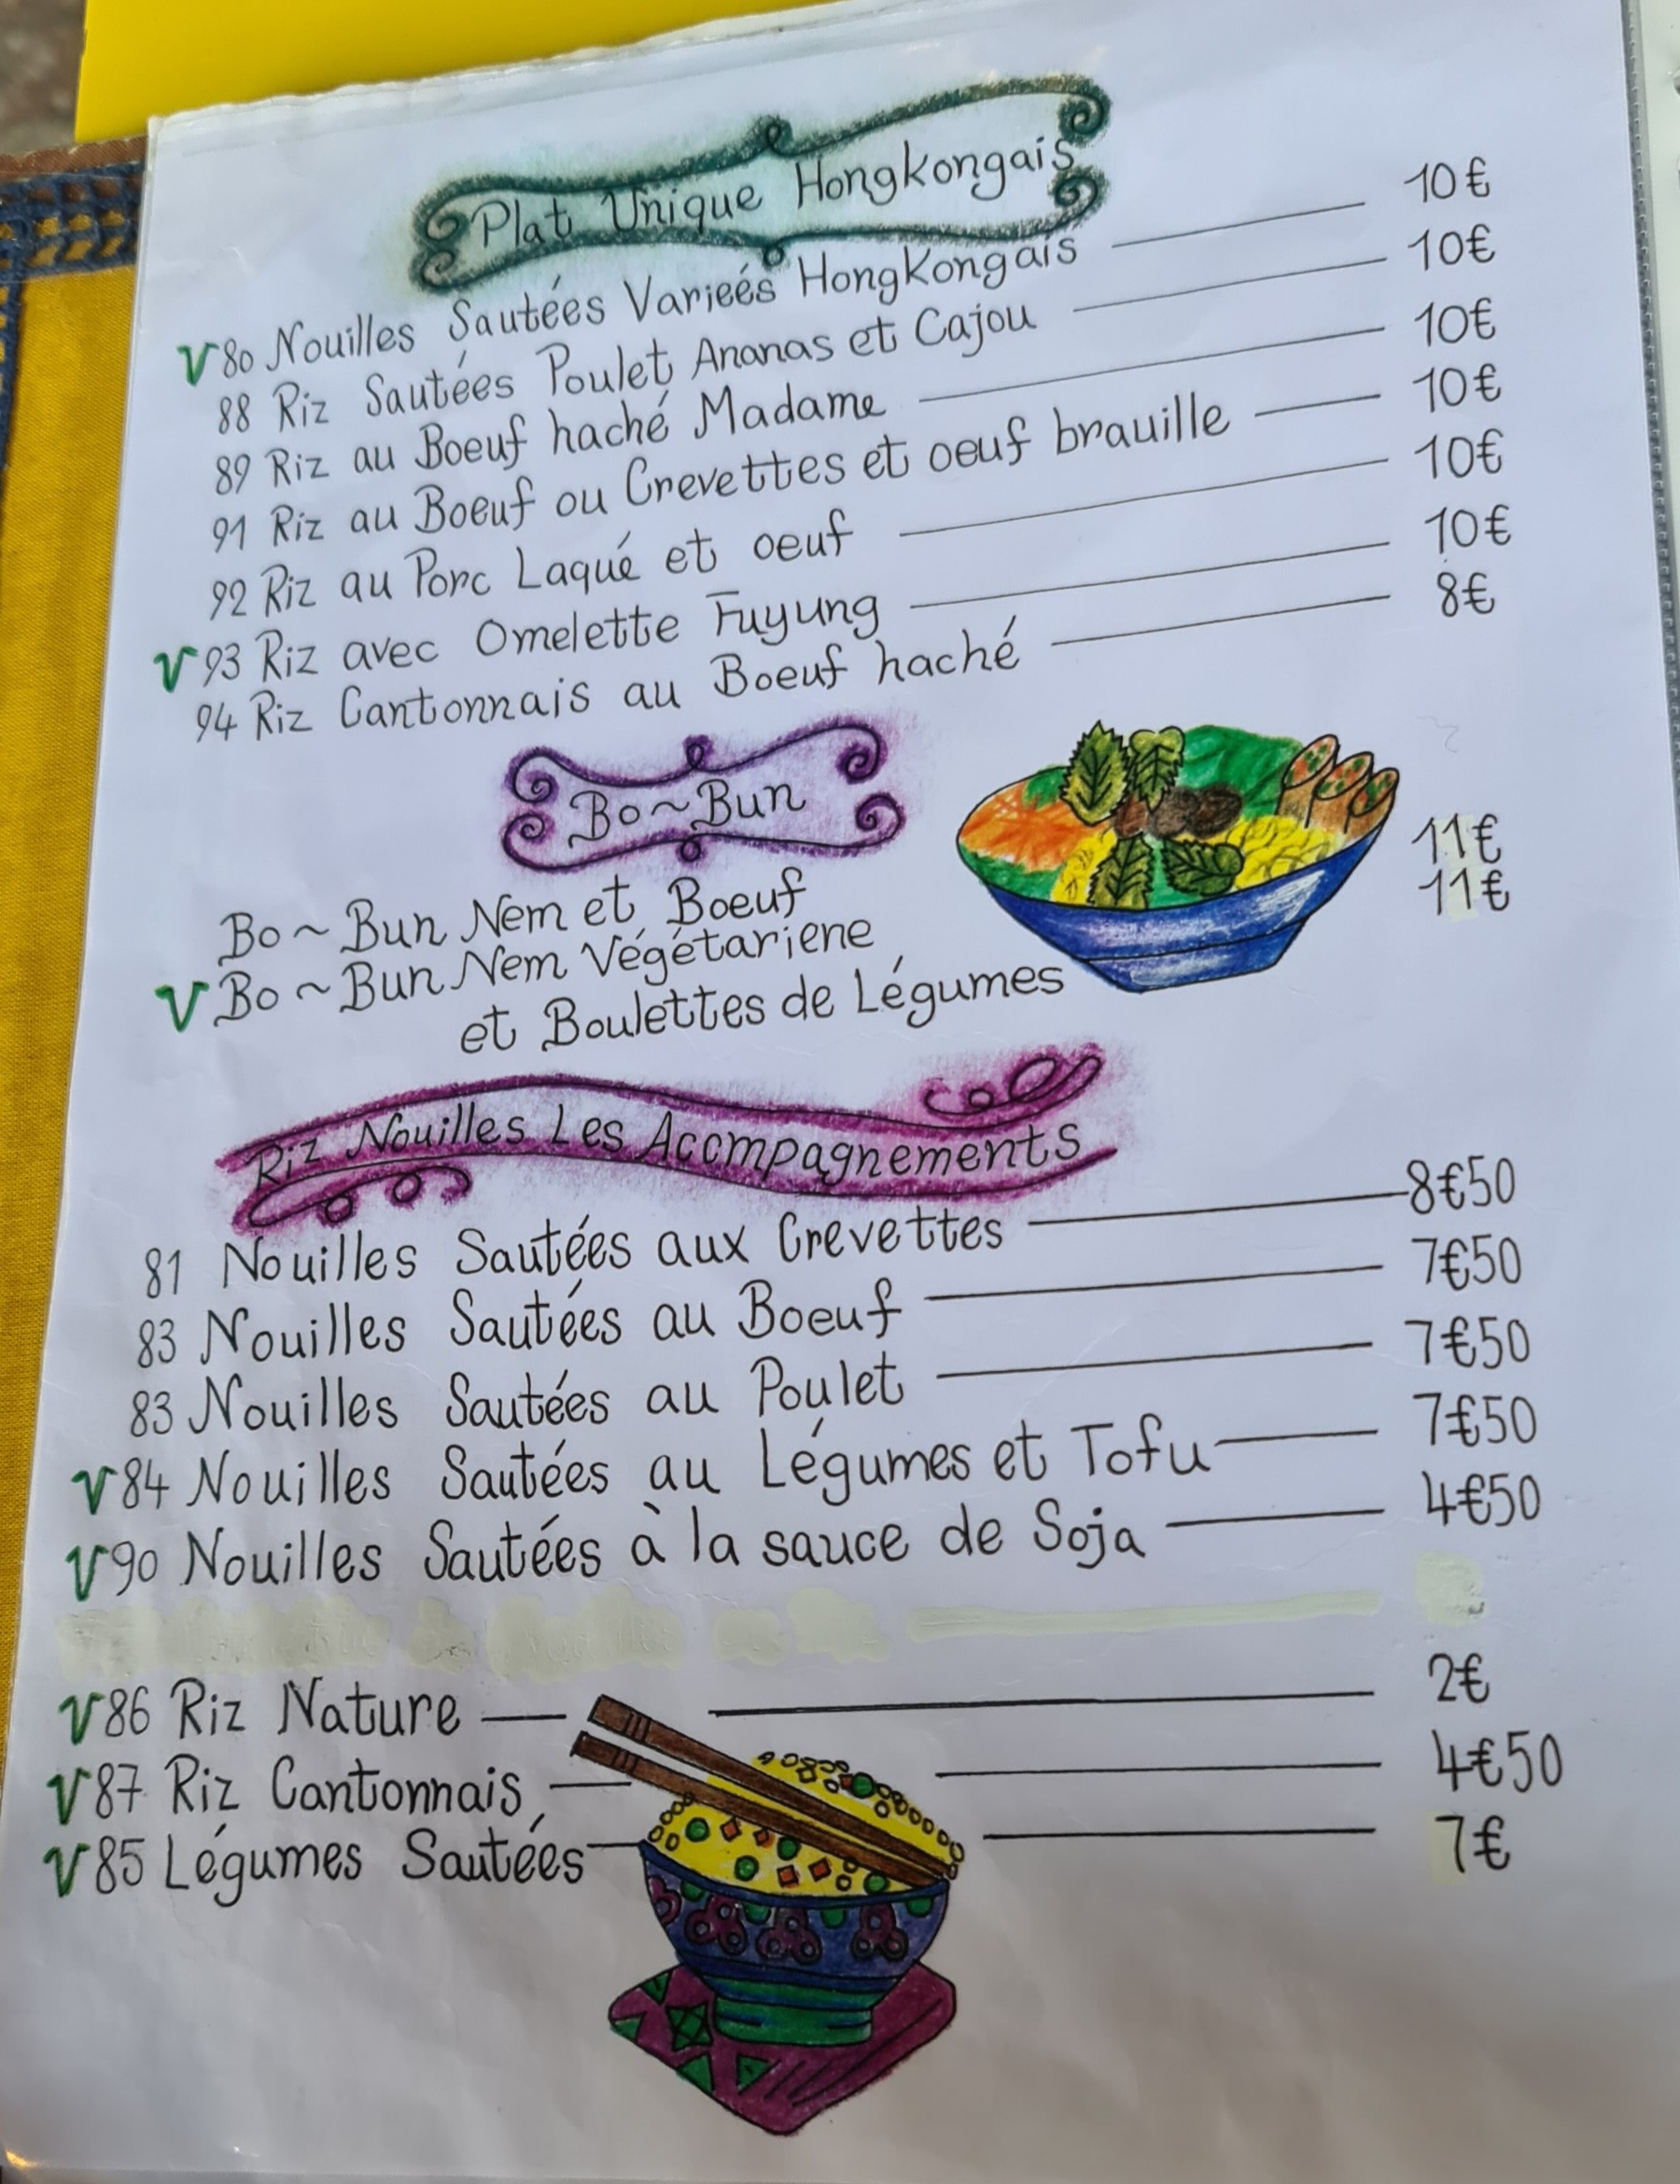 Plat Unique Hongkongais
V 80 Nouilles Sautées Varieés Hongkongais 10€
88 Riz Sautées Poulet Ananas et Cajou 10€
89 Riz au Boeuf haché Madame 10€
91 Riz au Boeuf ou Crevettes et oeuf brauille 10€
92 Riz au Porc Laqué et oeuf 10€
V 93 Riz avec Omelette Fuyung 10€
94 Riz Cantonnais au Boeuf haché 8€
Bo~Bun
Bo~Bun Nem et Boeuf 11€
V Bo~Bun Nem Végétariene 11€
et Boulettes de Légumes
Riz Nouilles Les Accmpagnements
81 Nouilles Sautées aux Crevettes 8€50
83 Nouilles Sautées au Boeuf 7€50
83 Nouilles Sautées au Poulet 7€50
V 84 Nouilles Sautées au Légumes et Tofu 7€50
V 90 Nouilles Sautées à la sauce de Soja 4€50
V 86 Riz Nature 2€
V 87 Riz Cantonnais 4€50
V 85 Légumes Sautées 7€